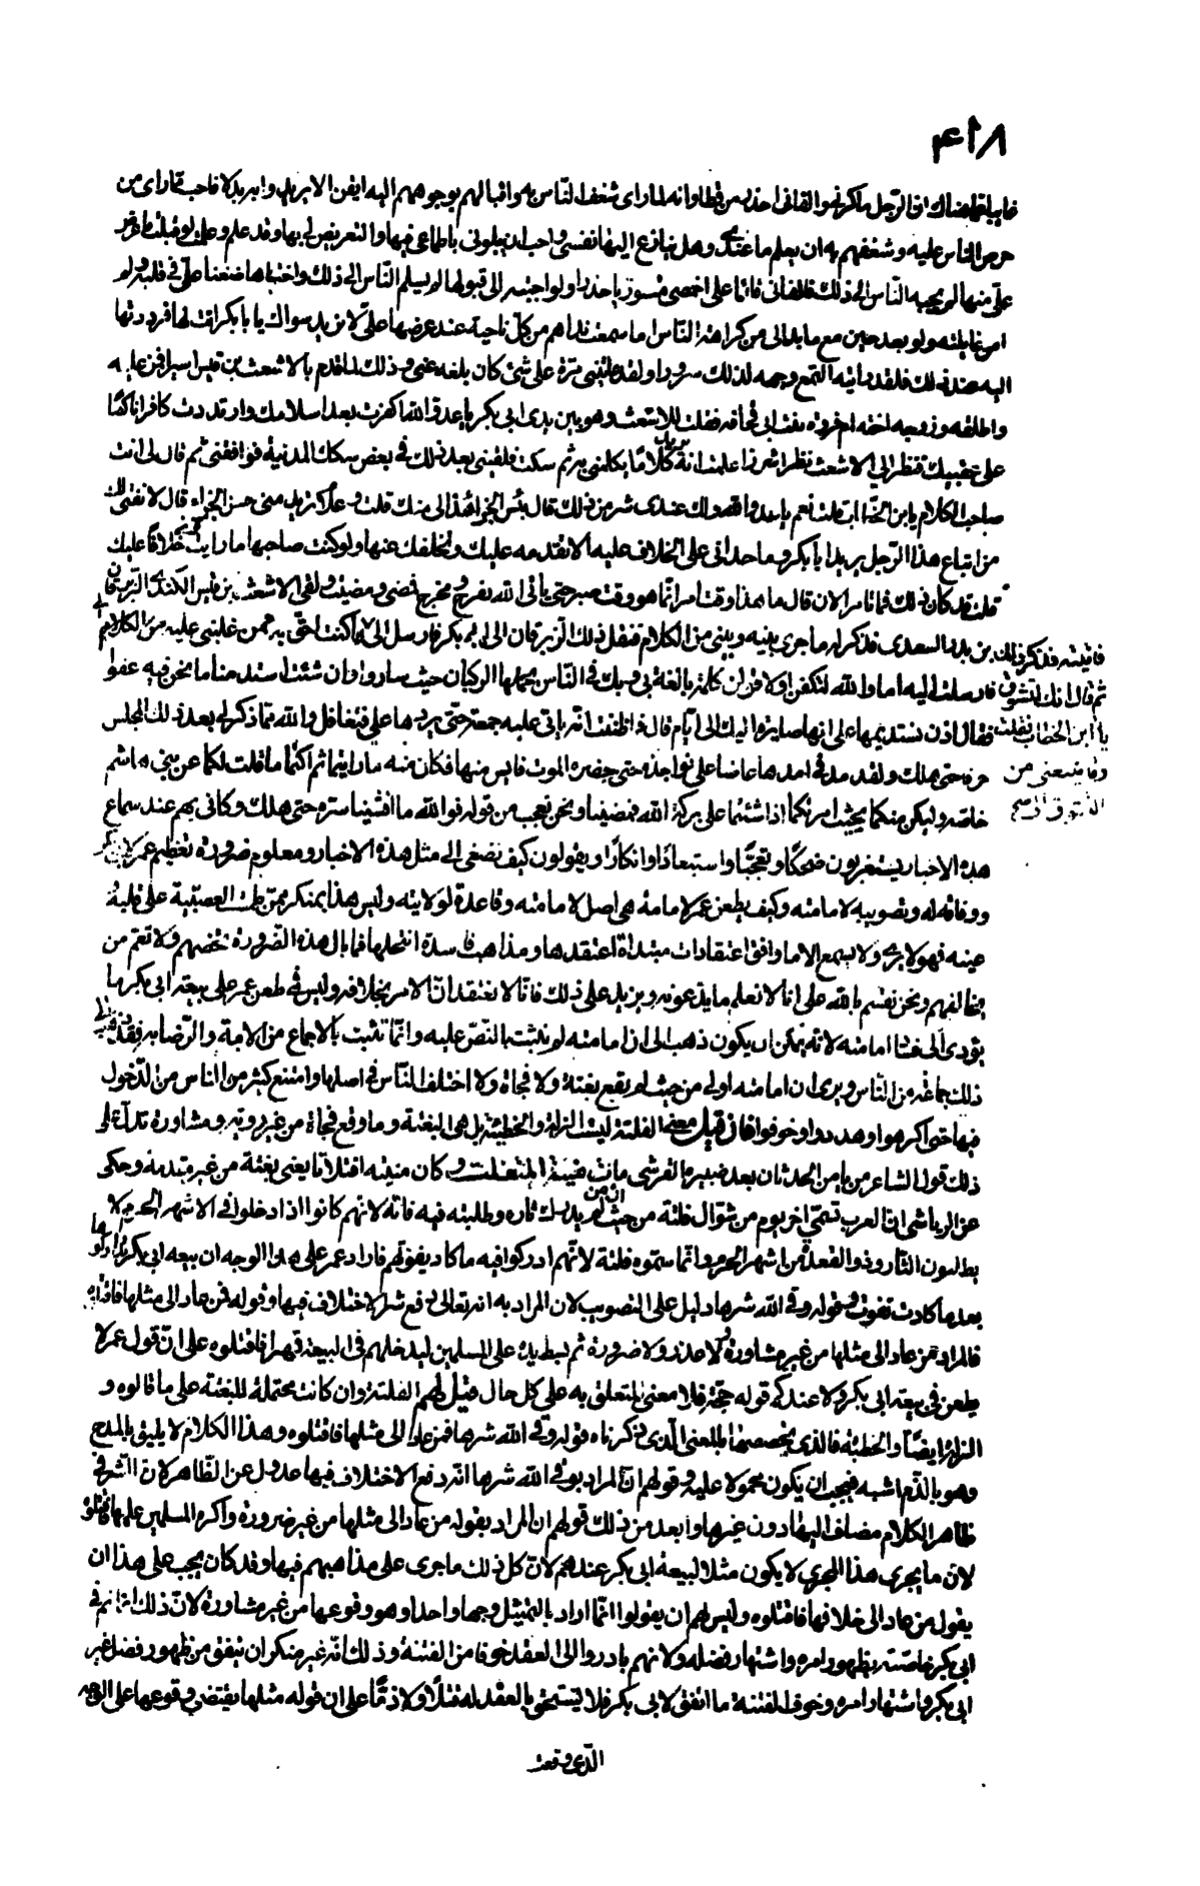 ٤١٨
الناس به واقبالهم بوجوههم اليه ايقن الا يريد وا به بدلا فاحب لما راى من
حرص الناس عليه وشغفهم به ان يعلم ما عندى وهل ينازع اليها نفسى واحب ان يبلونى باطماعى فيها والتعريض لى بها وقد علم وعلمت لو قبلت ما عرض
على منها لم يجب الناس الى ذلك فالفانى قائما على اخمصى مستوفزا حذرا ولو اجبته الى قبولها لم يسلم الناس الى ذلك واختباها ضغنا على فى قلبه ولم
امن غايلته ولو بعد حين مع ما بدا لى من كراهة الناس اما سمعت نداءهم من كل ناحية عند عرضها على لا نريد سواك يا با بكر انت لها فرددتها
اليه عند ذلك فلقد رايته التمع وجهه لذلك سرورا ولقد عاتبنى مرة على شئ كان بلغه عنى وذلك لما قدم بالاشعث بن قيس اسيرا فمن عليه
واطلقه وزوجه اخته ام فروة بنت ابى قحافة فقلت للاشعث وهو بين يدى ابى بكر يا عدو الله اكفرت بعد اسلامك وارتددت كافرا ناكصا
على عقبيك فنظر الى الاشعث نظرا شزرا علمت انه يريد كلاما يكلمنى به ثم سكت فلقينى بعد ذلك فى بعض سكك المدينة فوافقنى ثم قال لى انت
صاحب الكلام يا بن الخطاب قلت نعم يا عدو الله ولك عندى شر من ذلك قال بئس الجزاء هذا لى منك قلت وعلام تريد منى حسن الجزاء قال لانفتى لك
من اتباع هذا الرجل يريد ابا بكر وما جرانى على الخلاف عليه الا تقدمه عليك وتخلفك عنها ولو كنت صاحبها ما رايت منى خلافا عليك
قلت قد كان ذلك فما تامر الان قال ما هذا وقت امر انما هو وقت صبر حتى ياتى الله بفرج ومخرج فمضى ومضيت ولقى الاشعث بن قيس الكندى الزبرقان
بن بدر السعدى فذكر له ما جرى بينه وبينى من الكلام فنقل ذلك الزبرقان الى ابى بكر فارسل الى
فاتيته فذكر ذلك
ثم قال انك لتشوق
يا ابن الخطاب فقلت
وما يمنعنى من
فارسلت اليه اما والله لتكفن او لاقولن كلمة بالغة بى وبك فى الناس يحملها الركبان حيث ساروا وان شئت استدمنا ما نحن فيه عفوا
فقال اذن نستديمها على انها صايرة اليك الى ايام قال فما ظننت انه ياتى عليه جمعة حتى يردها على فتغافل والله فما ذكر لى بعد ذلك المجلس
حرفا حتى هلك ولقد مد فى امدها عاضا على نواجذه حتى حضره الموت فايس منها فكان منه ما رايتما ثم اكتما ما قلت لكما عن بنى هاشم
خاصة وليكن منكما بحيث امرتكما اذا شئتما على بركة الله فمضينا ونحن نعجب من قوله فوالله ما افشينا سره حتى هلك وكانى بهم عند سماع
هذه الاخبار يستغربون ضحكا وتعجبا واستبعادا وانكارا ويقولون كيف نصغى الى مثل هذه الاخبار ومعلوم ضرورة تعظيم عمر لابى بكر
ووفاقه له وتصويبه لامامته وكيف يطعن عمر فى امامة هى اصل لامامته وقاعدة لولايته وليس هذا بمنكر ممن طمست العصبية على قلبه
عينه فهو لا يرى ولا يسمع الا ما وافق اعتقادات مبتداة اعتقدها ومذاهب فاسدة انتحلها فما بال هذه الضرورة تخصهم ولا تعم من
يخالفهم ونحن نقسم بالله على انا لا نعلم ما يدعونه ونزيد على ذلك فانا لا نعتقد ان الامر بخلافه وليس فى طعن عمر على بيعة ابى بكر ما
يؤدى الى فساد امامته لانه يمكن ان يكون ذهب الى ان امامته لم يثبت بالنص عليه وانما تثبت بالاجماع من الامة والرضا به فقد ذهب الى
ذلك جماعة من الناس ويرى ان امامته اولى من حيث لم يقع بغتة ولا فجاة ولا اختلف الناس فى اصلها وامتنع كثير من الناس من الدخول
فيها حتى اكرهوا وهددوا وخوفوا فان قيل معنى الفلتة ليست الزلة والخطيئة بل هى البغتة وما وقع فجاة من غير روية ومشاورة تدل على
ذلك قول الشاعر من يامن الحدثان بعد صبيرة القرشى مات سبقت منيته المشيب وكان منيته افتلاتا يعنى بغتة من غير مقدمة وحكى
عن الرياشى ان العرب تسمى اخر يوم من شوال فلتة من حيث ان من لم يدرك ثاره وطلبته فيه فاته لانهم كانوا اذا دخلوا فى الاشهر الحرم لا
يطلبون الثار وذو القعدة من اشهر الحرم وانما سموه فلتة لانهم ادركوا فيه ما كاد يفوتهم فاراد عمر على هذا الوجه ان بيعة ابى بكر تداركوها
بعد ما كادت تفوت وقوله وقى الله شرها دليل على التصويب لان المراد به انه تعالى دفع شر الاختلاف فيها وقوله فمن عاد الى مثلها فاقتلوه
فالمراد من عاد الى مثلها من غير مشاورة ولا عذر ولا ضرورة ثم بسط يده على المسلمين ليدخلهم فى البيعة قهرا فاقتلوه على ان قول عمر لا
يطعن فى بيعة ابى بكر ولا عندكم قوله حجة فلا معنى للتعلق به على كل حال قيل لهم الفلتة وان كانت محتملة للبغتة على ما قالوه و
الزلة ايضا والخطيئة فالذى يخصصها بالمعنى الذى ذكرناه قوله وقى الله شرها فمن عاد الى مثلها فاقتلوه وهذا الكلام لا يليق بالمدح
وهو بالذم اشبه فيجب ان يكون محمولا عليه وقولهم ان المراد بوقى الله شرها انه دفع الاختلاف فيها عدول عن الظاهر لان الشر فى
ظاهر الكلام مضاف اليها دون غيرها وابعد من ذلك قولهم ان المراد بقوله من عاد الى مثلها من غير ضرورة واكره المسلمين عليها فاقتلوه
لان ما يجرى هذا المجرى لا يكون مثلا لبيعة ابى بكر عندهم لان كل ذلك ما جرى على مذاهبهم فيها وقد كان يجب على هذا ان
يقول من عاد الى خلافها فاقتلوه وليس لهم ان يقولوا انما اراد بالتمثيل وجها واحدا وهو وقوعها من غير مشاورة لان ذلك انما تم فى
ابى بكر خاصة بظهور امره واشتهار فضله ولانهم بادروا الى العقد خوفا من الفتنة وذلك انه غير منكر ان يتفق من ظهور فضل غير
ابى بكر واشتهار امره وخوف الفتنة ما اتفق لابى بكر فلا يستحق بالعقد له قتلا ولا ذما على ان قوله مثلها يقتضى وقوعها على الوجه
الذى وقعت